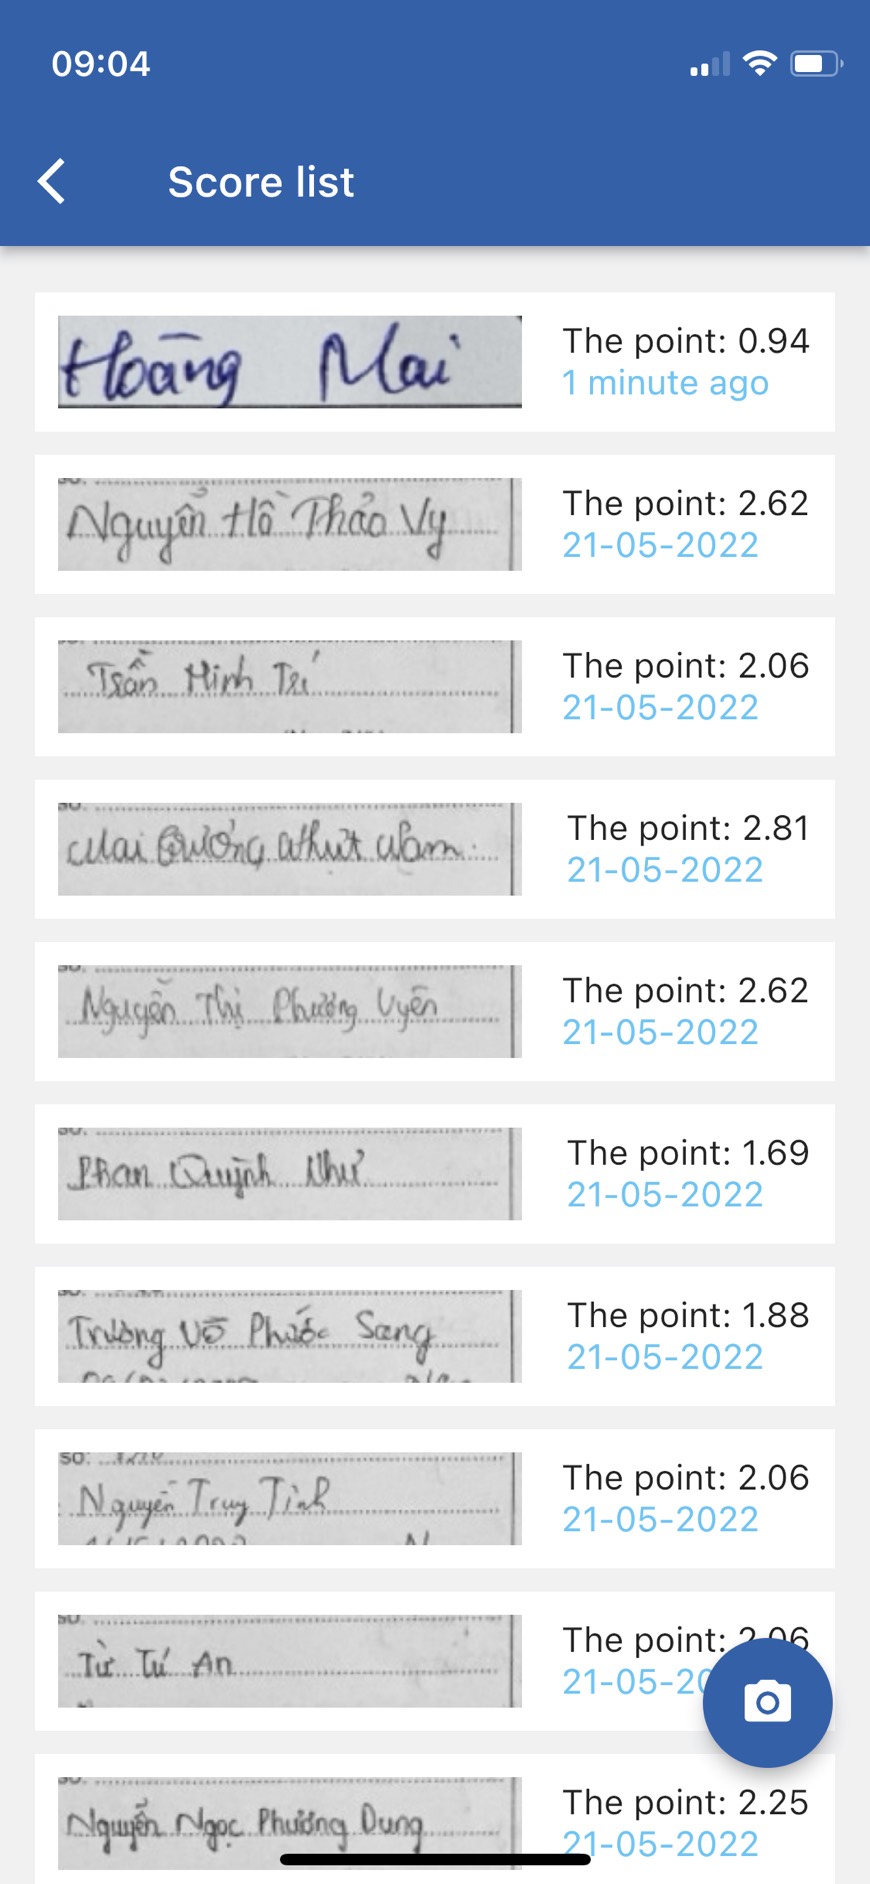 09:04
Score list
Hoàng Mai
The point: 0.94
1 minute ago
Nguyễn Hồ Thảo Vy
The point: 2.62
21-05-2022
Trần Minh Trí
The point: 2.06
21-05-2022
Mai Nhựt Nam
The point: 2.81
21-05-2022
Nguyễn Thị Phương Uyên
The point: 2.62
21-05-2022
Phan Quỳnh Như
The point: 1.69
21-05-2022
Trương Võ Phước Sang
The point: 1.88
21-05-2022
số:
Nguyễn Truy Tình
The point: 2.06
21-05-2022
Từ Tú An
The point: 2.06
21-05-20
Nguyễn Ngọc Phương Dung
The point: 2.25
21-05-2022